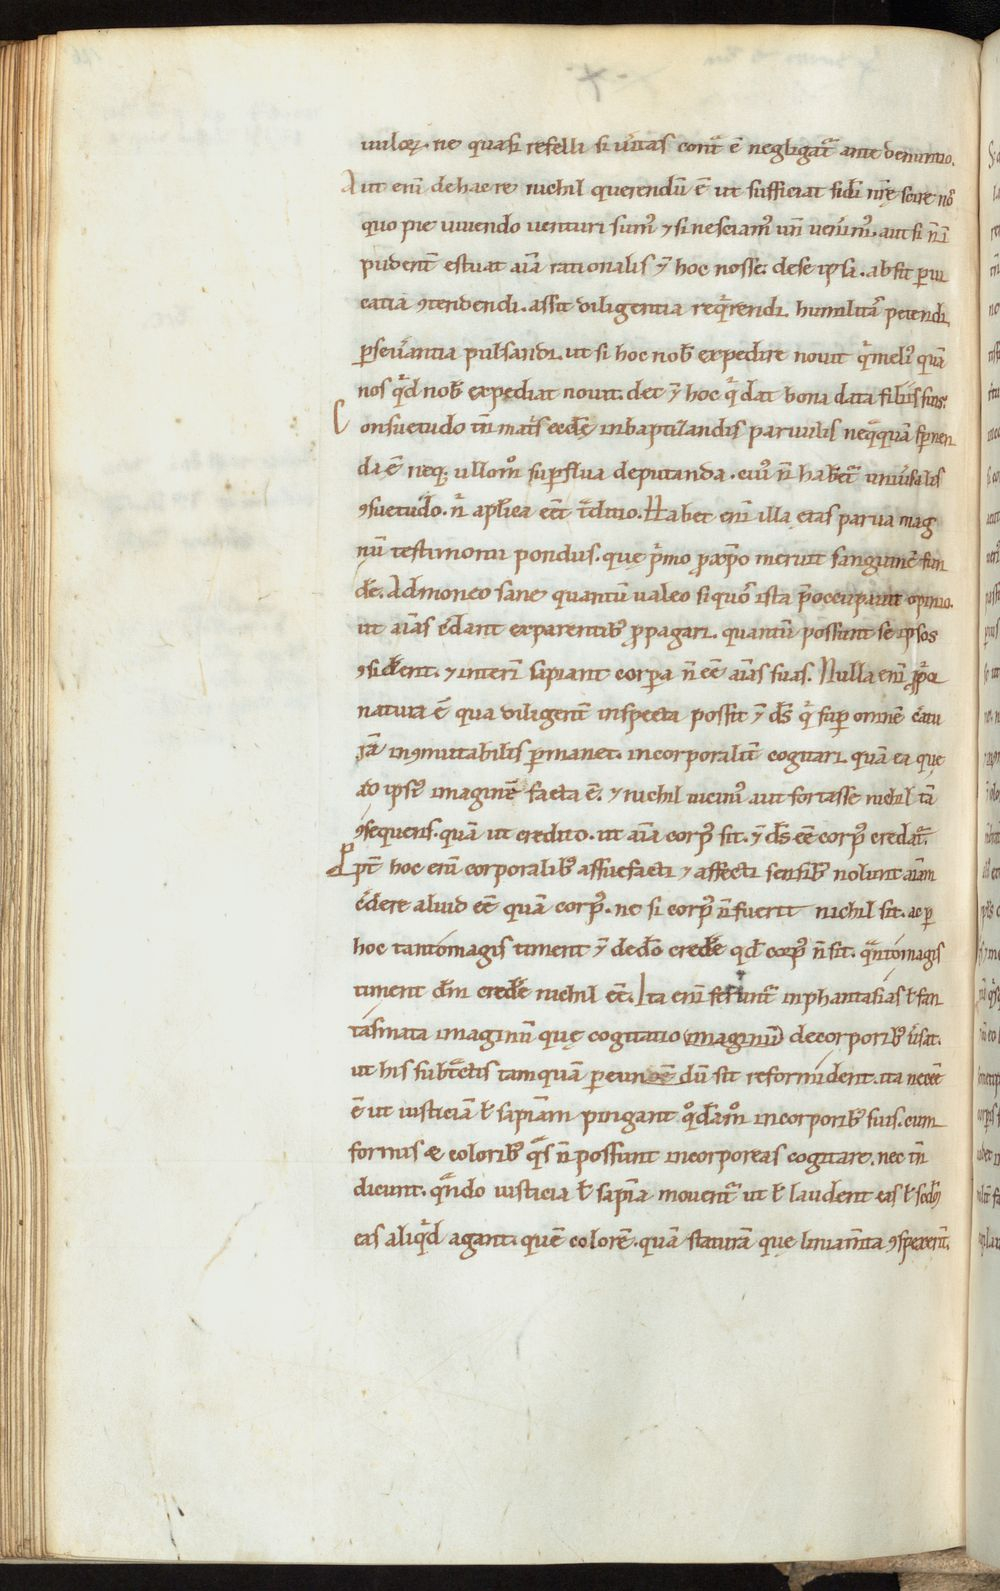 uuloꝝ. ne quasi refelli si ueritas cont̄ ē negligat᷑ ante denuntio.
Aut eni͞ de hac re nichil querendū ē ut sufficiat fidei nr̄ę scire nos
quo pie uiuendo uenturi sum᷒ ⁊ si nesciam᷒ un̄ uenim᷒. aut si n̄ ī
pudent̄ estuat aīa rationalis ⁊̄ hoc nosse. de se ipsa. absit ꝑui
catia ꝯtendendi. assit diligentia reqͥrendi. humilitas petendi
ꝑseuerantia pulsandi. ut si hoc nob̄ expedire nouit qͥ meli᷒ quā
nos qͥd nob̄ expediat nouit. det ⁊̄ hoc qͥ dat bona data filiis suis.
Consuetudo tn̄ matris eccl̄ę in baptizandis paruulis neqͣquā spernen
da ē neq; ullomͦ suꝑflua deputanda. cui᷒ n̄ habet᷑ uniuersalis
ꝯsuetudo. n̄ ap̄lica eēt t̄ditio. Habet eni͞ illa ętas parua mag
nū testimonii pondus. quę pͥmo ꝓ xp̄o meruit sanguinē fun
dere. Admoneo sane quantū ualeo si quos ista p̄occupauit opinio.
ut aīas credant ex parentib᷒ ꝓpagari. quantū possunt se ipsos
ꝯsiderent. ⁊ interī sapiant corꝑa n̄ eē aīas suas. Nulla eni͞ ꝓpͥor
natura ē qua diligent̄ inspecta possit ⁊̄ d̄s qͥ suꝑ omnē creatu
rā inꝯmutabilis ꝑmanet. incorporalit̄ cogitari. quā ea quę
ad ipsi᷒ imaginē facta ē. ⁊ nichil uicini᷒ aut fortasse nichil tā
ꝯsequens. quā ut credito. ut aīa corp᷒ sit. ⁊̄ d̄s eē corp᷒ credat᷑.
Ppt̄ hoc eni͞ corporalib᷒ assuefacti ⁊ affecti sensib᷒ nolunt aīam
credere aliud eē quā corp᷒. ne si corp᷒ n̄ fuerit nichil sit. ac ꝑ
hoc tanto magis timent ⁊̄ de dō credere qd̄ corp᷒ n̄ sit. qͣnto magis
timent dm̄ credere nichil eē. Ita eni͞ ferunt᷑ in phantasias ł fan
tasmata imaginū quę cogitatio imaginū de corporib᷒ uersat.
ut his subtractis tamquā ꝑeundū sit reformident. ita necēē
ē ut iusticiā ł sapiam̄ pingant qͦdāmͦ in corporib᷒ suis. cum
formis & colorib᷒ qͣs n̄ possunt incorporeas cogitare. nec tn̄
dicunt. qͣndo iusticia ł sapīa mouent᷑ ut ł laudent eas ł scdm̄
eas aliqͥd agant. quē colorē. quā staturā quę liniam̄ta ꝯspexerint.